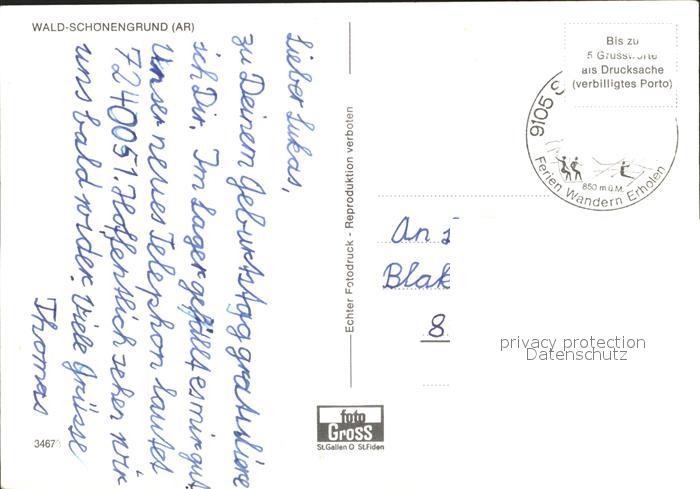 WALD-SCHÖNENGRUND (AR)
Lieber Lukas,
zu Deinem Geburtstag gratuliere
ich Dir. Im Lager gefällt es mir gut.
Unser neues Telephon lautet
7240051. Hoffentlich sehen wir
uns bald wider. Viele Grüsse
Thomas
3467
Echter Fotodruck - Reproduktion verboten
foto
Gross
St.Gallen O St.Fiden
Bis zu
5 Grussworte
als Drucksache
(verbilligtes Porto)
9105 S
850 m ü.M.
Ferien Wandern Erholen
An
Blak
8
privacy protection
Datenschutz